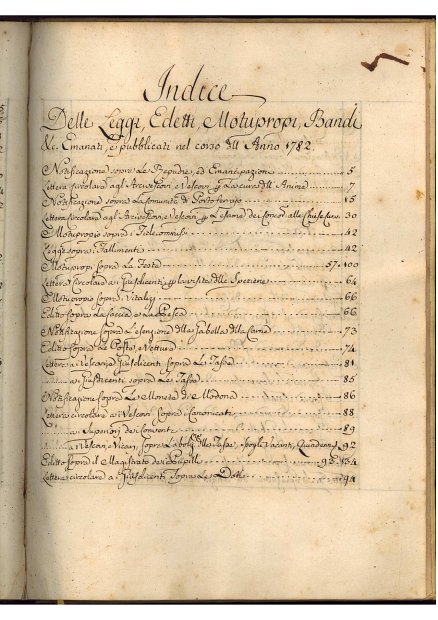 Indice
Delle Leggi, Edetti, Motupropi, Bandi
&c. Emanati, e pubblicati nel corso dell Anno 1782.
Notificazione sopra Le Repudie, ed Emancipazioni 5
Lettera Circolare agl' Arcivescovi, e Vescovi La cura dell Anime 7
Notificazione sopra La Comunità di Portoferraio 15
Lettera Circolare agl' Arcivescovi, e Vescovi dei Concorsi alle Chiese 30
Motuproprio sopra i Fidecommissi 42
Legge sopra i Fallimenti 42
Motupropi sopra Le Feste 57. 100
Lettera Circolare ai Giusdicenti la visita delle Spezierie 64
Motupropio sopra i Vitalizi 66
Editto sopra La Caccia e La Pesca 66
Notificazione sopra L'esenzione della Gabella della Carne 73
Editto sopra Le Poste, e Vetture 74
Lettera ai Vescovi e Giusdicenti sopra Le Tasse 81
ai Giusdicenti sopra Le Tasse 85
Notificazione sopra Le Monete di Modena 86
Lettera circolare ai Vescovi sopra i Canonicati 88
ai Superiori dei Conventi 89
ai Vescovi, e Vicari, sopra delle Tasse, Spogli Vacanti, Quindenni 92
Editto sopra il Magistrato dei Pupilli 134
Lettera circolare ai Giusdicenti sopra Le Doti 94